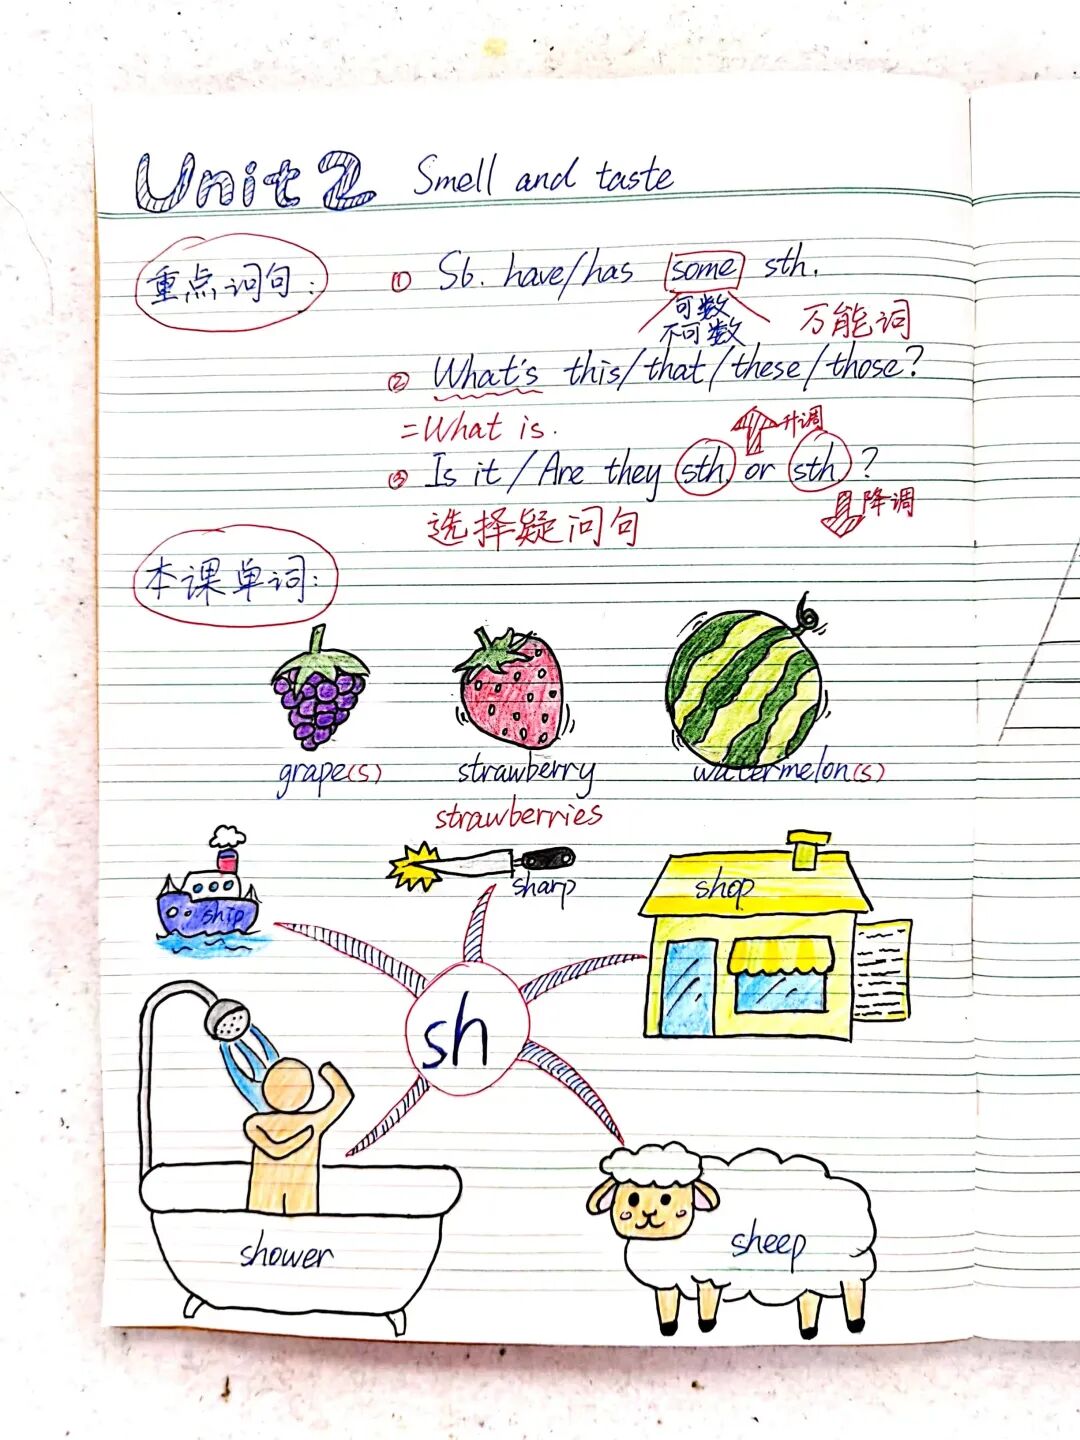 Unit 2 Smell and taste
重点词句:
① Sb. have/has some sth.
可数
不可数
万能词
② What's this/that/these/those?
=What is.
升调
③ Is it / Are they sth. or sth. ?
降调
选择疑问句
本课单词:
grape(s) strawberry watermelon(s)
strawberries
ship
sharp
shop
sh
shower
sheep